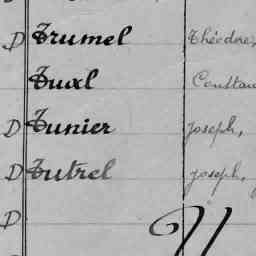 D Trumel Théodore,
Tual Constan
D Tunier Joseph,
D Tutrel Joseph,
D